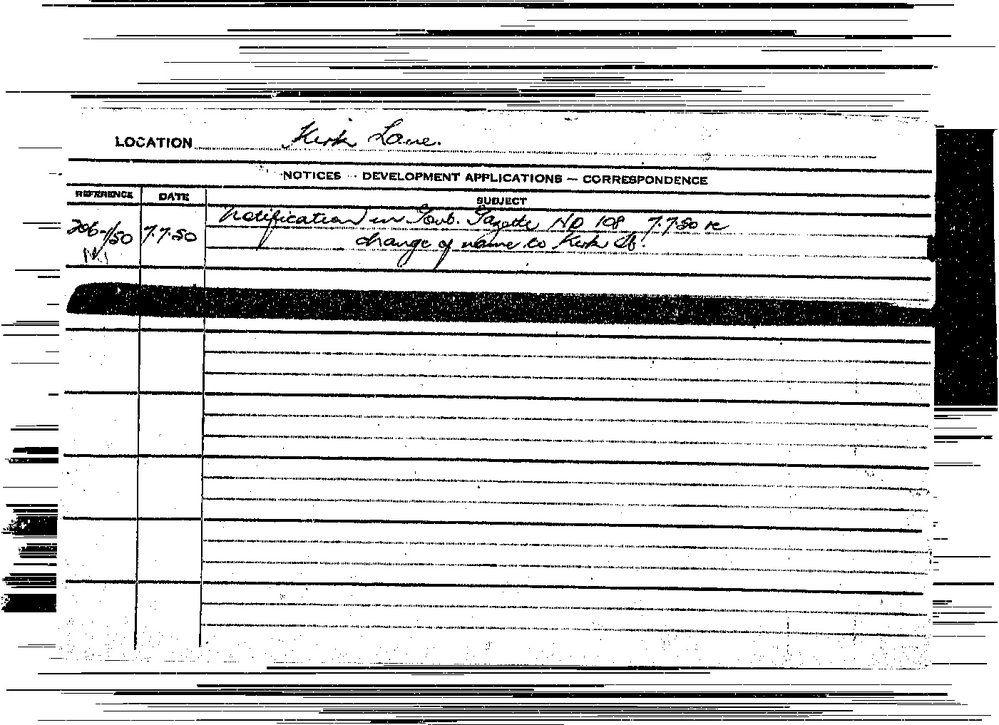 LOCATION Kirk Lane.
NOTICES - DEVELOPMENT APPLICATIONS - CORRESPONDENCE
REFERENCE DATE SUBJECT
206-/50 7.7.50 Notification in Govt. Gazette No 108 7.7.50 re
change of name to Kirk St.